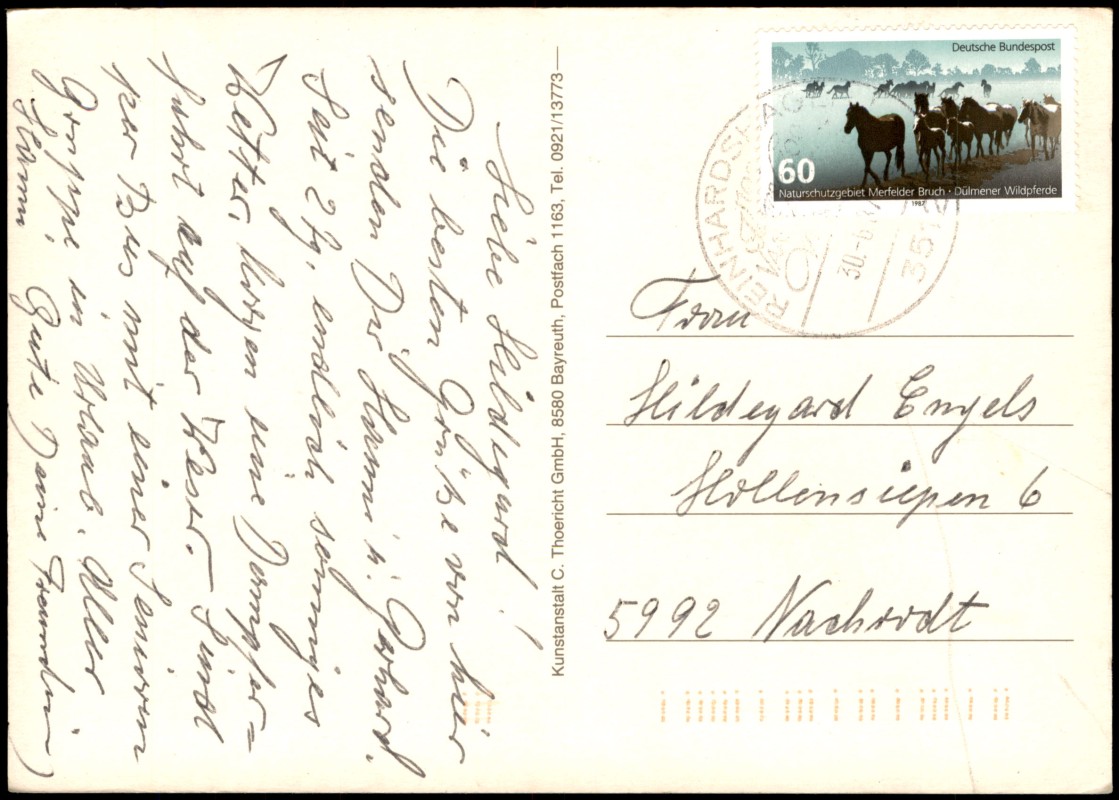 Liebe Hildegard!
Die besten Grüße von hier
senden Dir Hanni u. Gerhard.
Seit 2 Tg. endlich sonniges
Wetter, morgen eine Dampfer=
fahrt auf der Weser. Sind
per Bus mit einer Senioren
Gruppe in Urlaub. Alles
Gute Deine Freundin
Hanni
Kunstanstalt C. Thoericht GmbH, 8580 Bayreuth, Postfach 1163, Tel. 0921/13773
Deutsche Bundespost
60
Naturschutzgebiet Merfelder Bruch · Dülmener Wildpferde
1987
REINHARDSHAGEN
30.-6
3512
Frau
Hildegard Engels
Hollensiepen 6
5992 Nachrodt